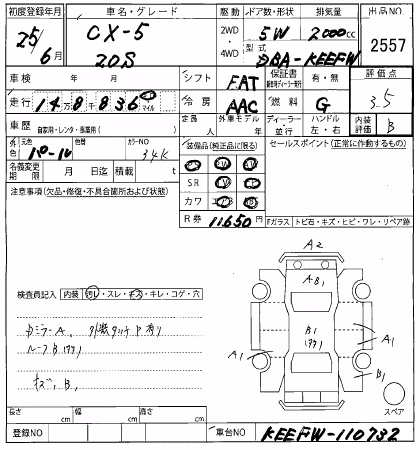 初度登録年月 車名・グレード 駆動 ドア数・形状 排気量 出品NO
25年 6月 CX-5 20S 2WD・4WD 5W 2000cc 2557
型式 DBA-KEEFW
車検 年 月 シフト FAT 保証書 有・無 評価点 3.5
走行 148836 マイル 冷房 AAC 燃料 G
車歴 自家用・レンタ・事業用( ) 定員 人 外車モデル 年 ディーラー・並行 ハンドル 左・右 内装評価 B
外色 元色 パール 色替 カラーNO 34K 装備品(純正品に限る) セールスポイント(正常に作動するもの)
名義変更期限 月 日迄 積載 t
SR
注意事項(欠品・修復・不具合箇所および状態) カワ
R券 11650 Fガラス トビ石・キズ・ヒビ・ワレ・リペア跡
A2
A B1
検査員記入 内装 切レ・スレ・キズ・キレ・コゲ・穴
ミラーA, 外板タッチP有り
ルーフB(ワケ)
キズ, B,
B1
(ワケ)
A1
A1
B1
スペア
長さ cm 幅 cm 高さ cm
登録NO 車台NO KEEFW-110732